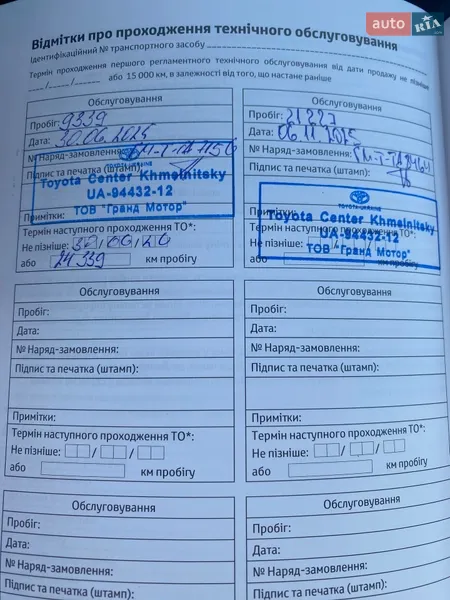 auto RIA .com
Відмітки про проходження технічного обслуговування
Ідентифікаційний № транспортного засобу
Термін проходження першого регламентного технічного обслуговування від дати продажу не пізніше
__/__/____ або 15 000 км, в залежності від того, що настане раніше
Обслуговування
Пробіг: 9339
Дата: 30.06.2025
№ Наряд-замовлення:
Підпис та печатка
TOYOTA-UKRAINE
Toyota Center Khmelnitsky
UA-94432-12
ТОВ "Гранд Мотор"
Примітки:
Термін наступного проходження ТО*:
Не пізніше: 30/06/26
або 24339 км пробігу
Обслуговування
Пробіг:
Дата: 06.11.2025
№ Наряд-замовлення:
Підпис та печатка (штамп):
TOYOTA-UKRAINE
Toyota Center Khmelnitsky
UA-94432-12
ТОВ "Гранд Мотор"
Примітки:
Термін наступного проходження ТО*:
Не пізніше:
або км пробігу
Обслуговування
Пробіг:
Дата:
№ Наряд-замовлення:
Підпис та печатка (штамп):
Примітки:
Термін наступного проходження ТО*:
Не пізніше: / /
або км пробігу
Обслуговування
Пробіг:
Дата:
№ Наряд-замовлення:
Підпис та печатка (штамп):
Примітки:
Термін наступного проходження ТО*:
Не пізніше: / /
або км пробігу
Обслуговування
Пробіг:
Дата:
№ Наряд-замовлення:
Підпис та печатка (штамп):
Обслуговування
Пробіг:
Дата:
№ Наряд-замовлення:
Підпис та печатка (штамп):